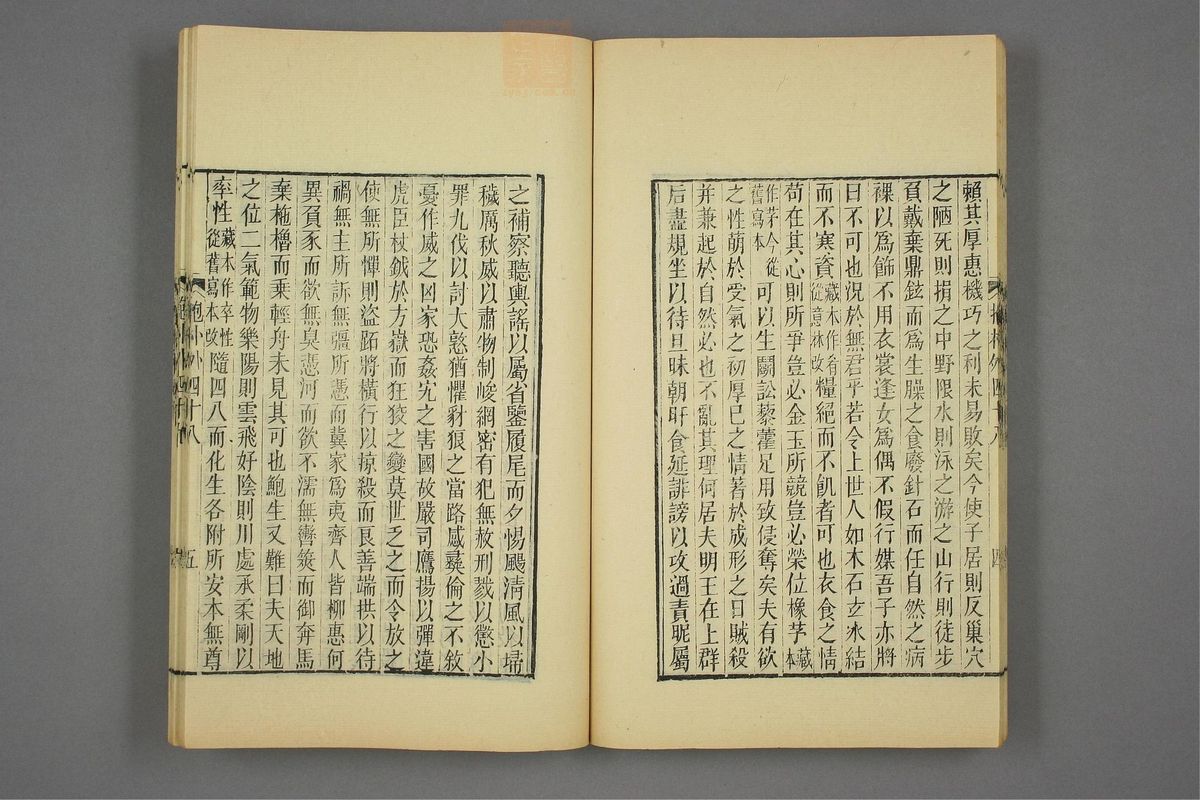 賴其厚惠機巧之利未易敗矣今使子居則反巢穴
之陋死則捐之中野限水則泳之游之山行則徒步
負戴棄鼎鉉而爲生臊之食廢針石而任自然之病
裸以爲飾不用衣裳逢女爲偶不假行媒吾子亦將
曰不可也況於無君乎若令上世人如木石玄冰結
而不寒資藏本作肴從意林改糧絕而不飢者可也衣食之情
苟在其心則所爭豈必金玉所競豈必榮位橡芧藏本
作茅今從舊寫本可以生鬬訟藜藿足用致侵奪矣夫有欲
之性萌於受氣之初厚己之情著於成形之日賊殺
并兼起於自然必也不亂其理何居夫明王在上群
后盡規坐以待旦昧朝旰食延誹謗以攻過責昵屬
之補察聽輿謠以屬省鑒履尾而夕惕颺清風以埽
穢厲秋威以肅物制峻網密有犯無赦刑戮以懲小
罪九伐以討大憝猶懼豺狼之當路感彝倫之不敘
憂作威之凶家恐姦宄之害國故嚴司鷹揚以彈違
虎臣杖鉞於方嶽而狂狡之變莫世乏之而令放之
使無所憚則盜跖將橫行以掠殺而良善端拱以待
禍無主所訴無彊所憑而冀家爲夷齊人皆柳惠何
異負豕而欲無臭憑河而欲不濡無轡筴而御奔馬
棄柂櫓而乘輕舟未見其可也鮑生又難曰夫天地
之位二氣範物樂陽則雲飛好陰則川處承柔剛以
率性藏本作卒性從舊寫本改隨四八而化生各附所安本無尊
抱小外四十八
五